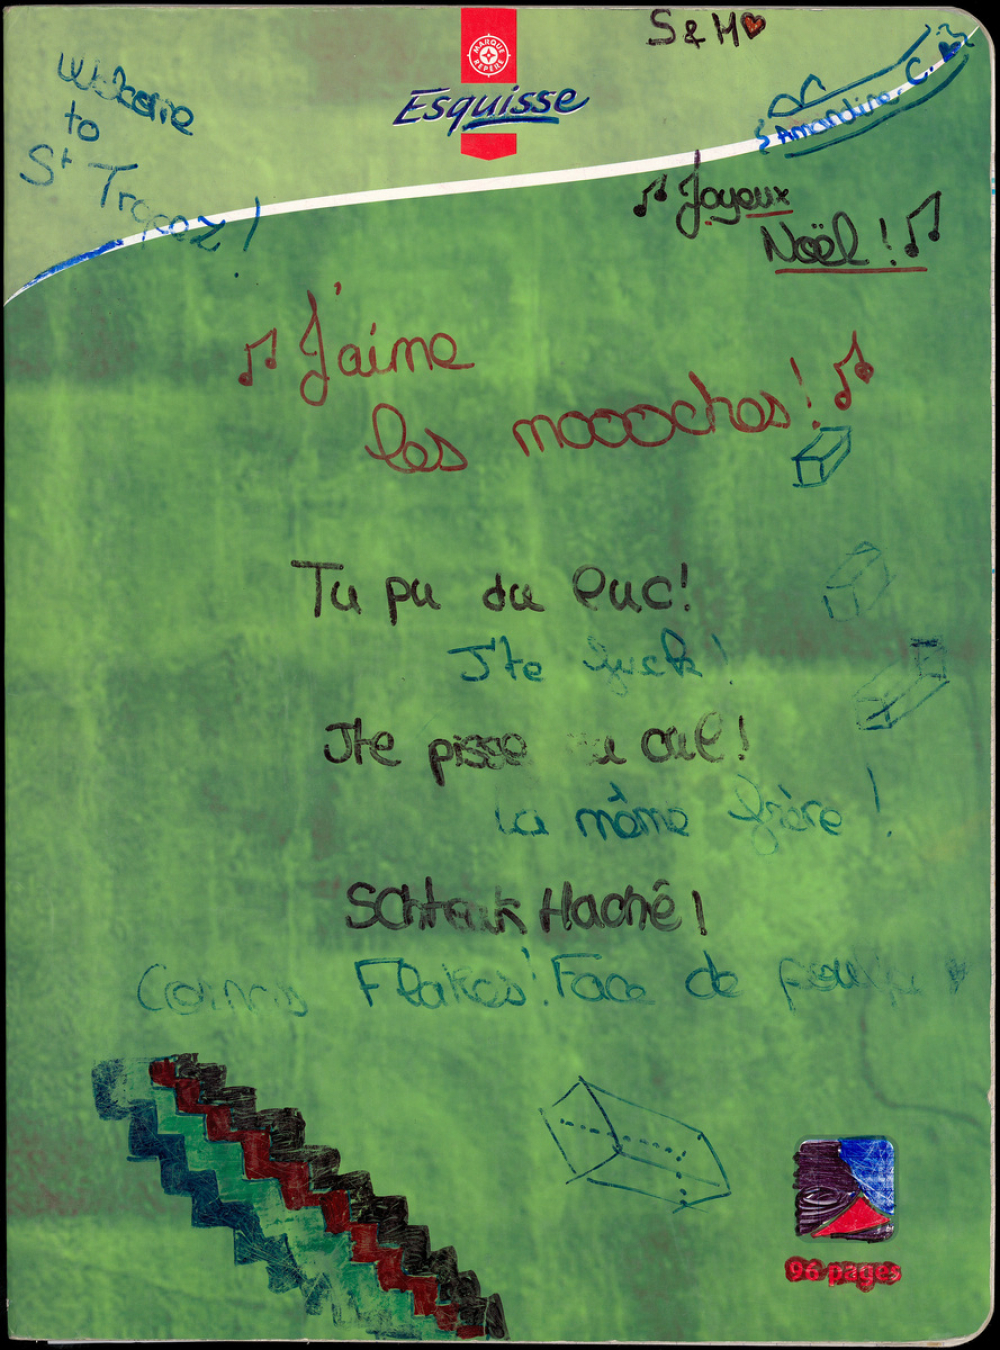 S & H
MARQUE
REPÈRE
Esquisse
Amandine. C.
Welcome
to
St Tropez !
Joyeux
Noël !
J'aime
les moooches !
Tu pu du luc !
J'te fuck !
J'te pisse au cul !
La même frère !
Schtark Haché !
Cornns Flakes ! Face de
96 pages